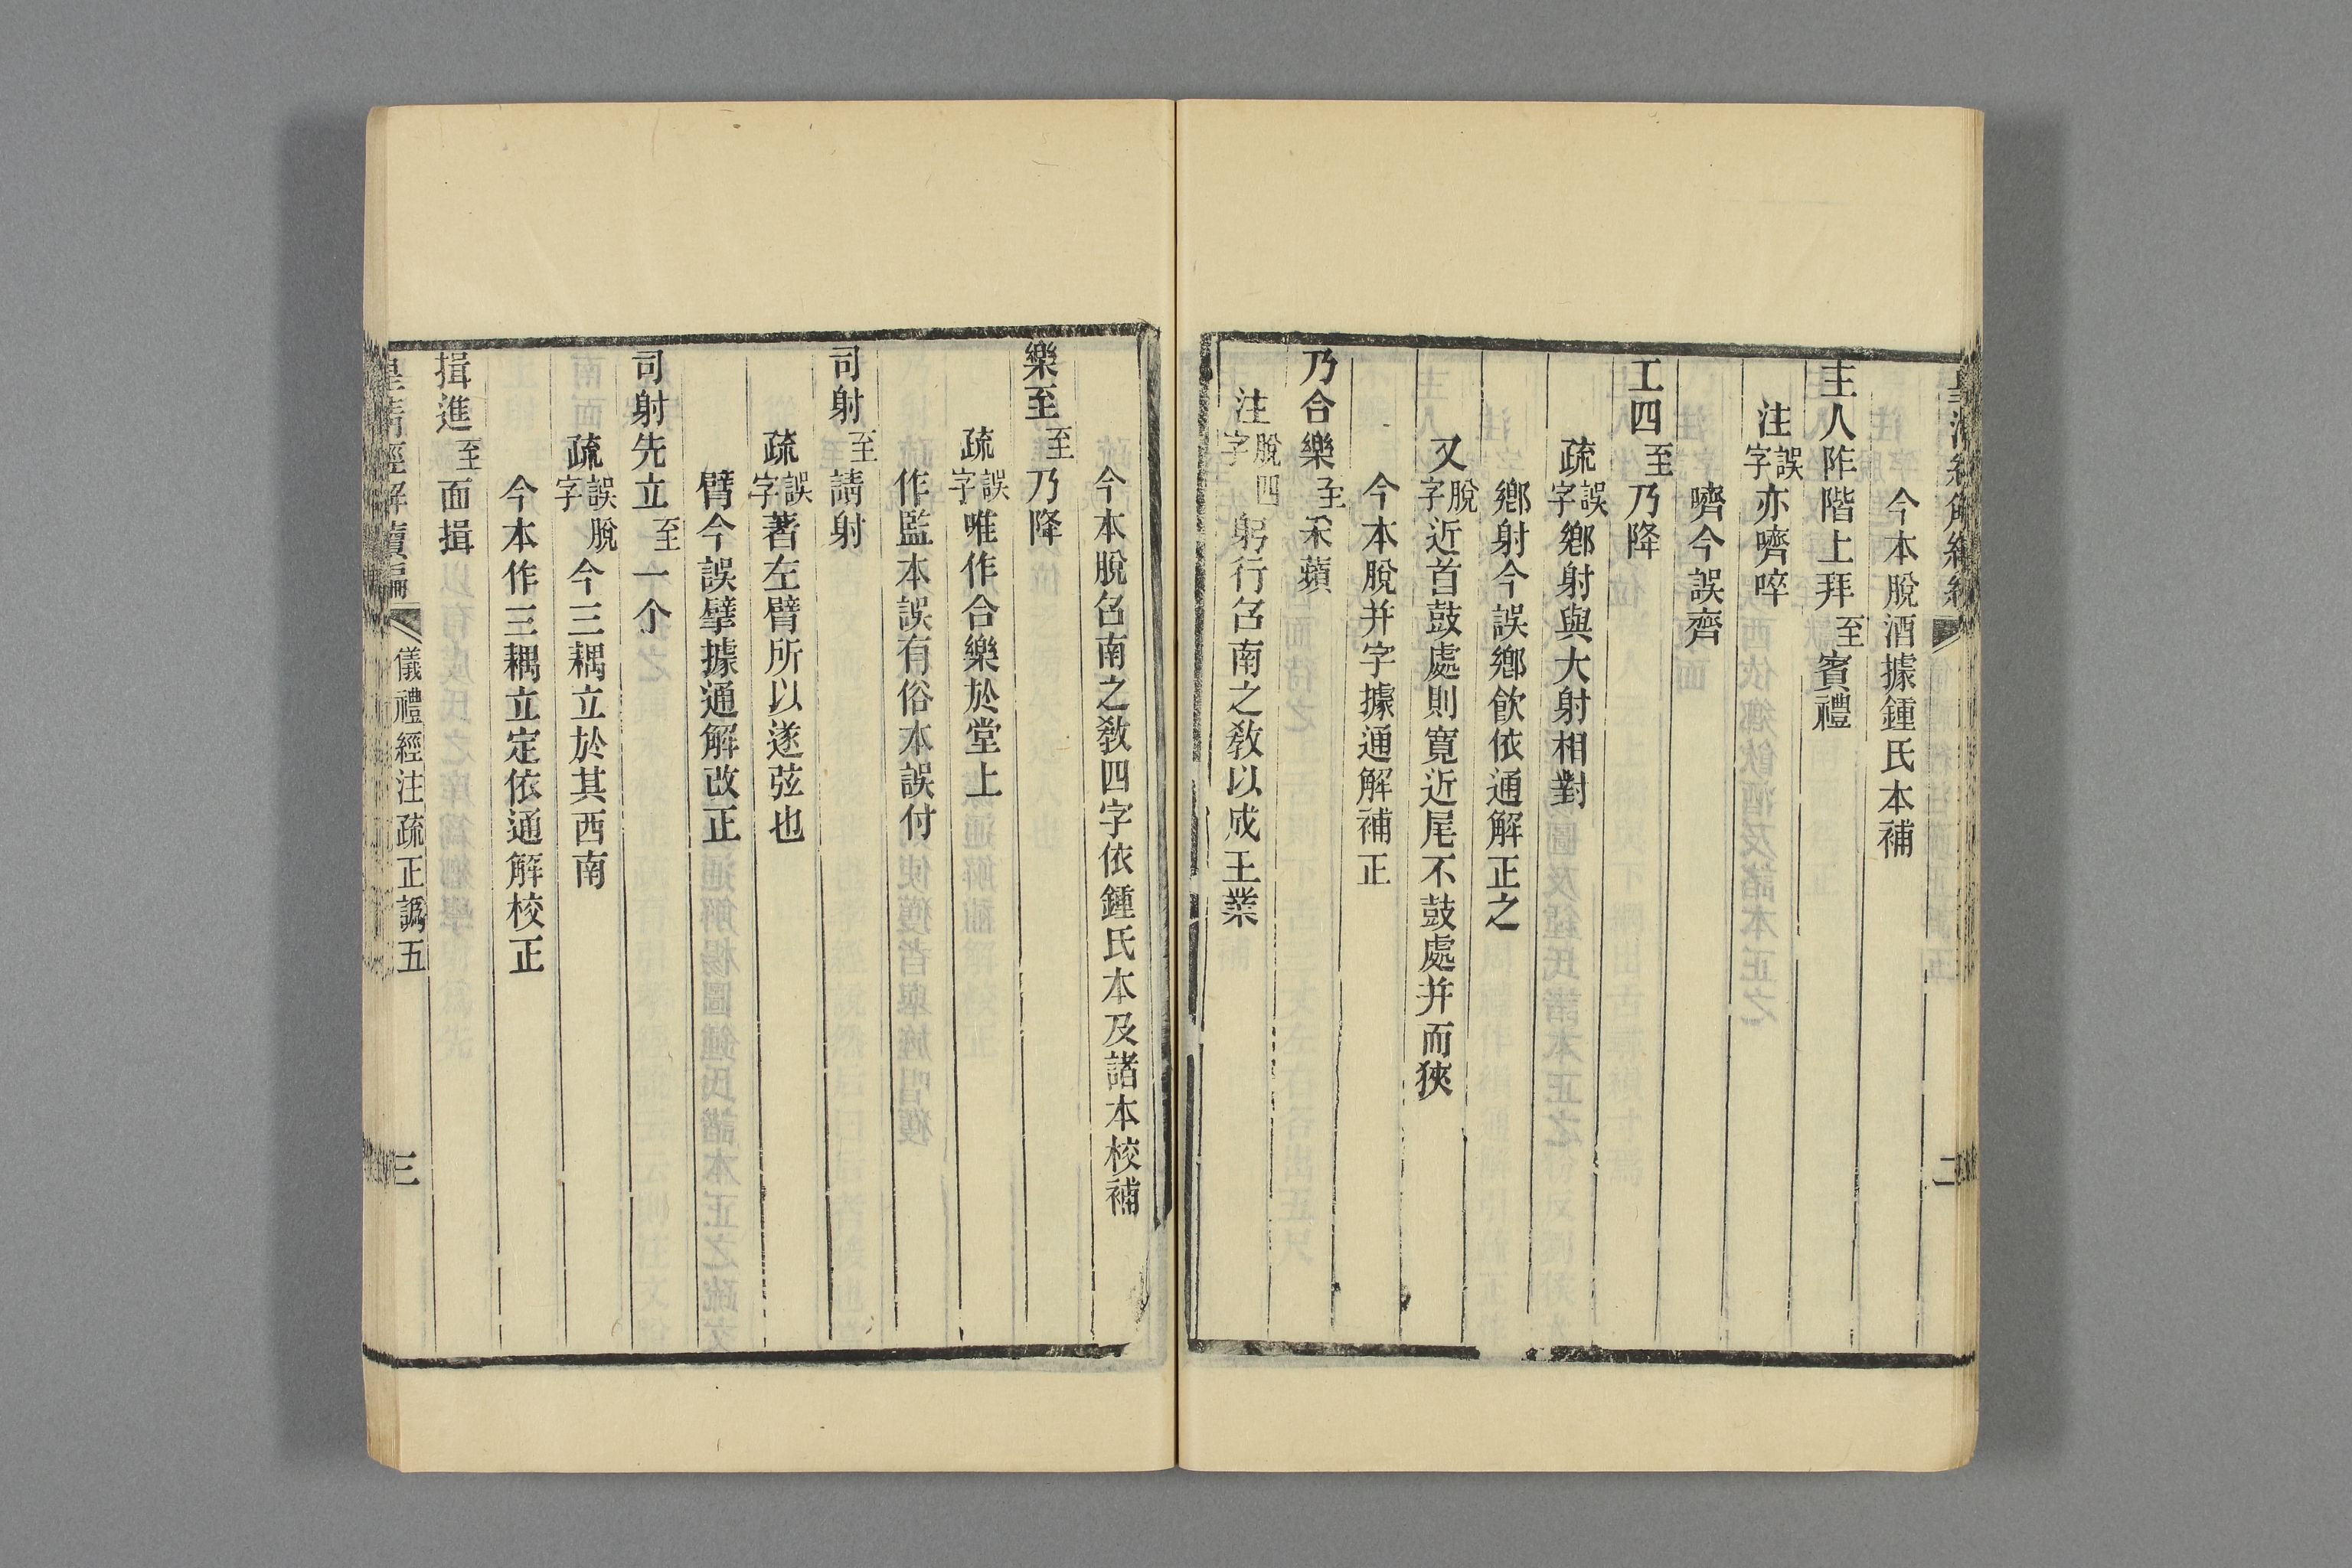 今本脫酒據鍾氏本補
主人阼階上拜至賓禮
注誤字亦嚌啐
嚌今誤齊
工四至乃降
疏誤字鄉射與大射相對
鄉射今誤鄉飲依通解正之
又脫字近首鼓處則寬近尾不鼓處并而狹
今本脫并字據通解補正
乃合樂至采蘋
注脫四字躬行召南之敎以成王業
今本脫召南之敎四字依鍾氏本及諸本校補
樂至至乃降
疏誤字唯作合樂於堂上
作監本誤有俗本誤付
司射至請射
疏誤字著左臂所以遂弦也
臂今誤擘據通解改正
司射先立至一个
疏誤字脫今三耦立於其西南
今本作三耦立定依通解校正
揖進至面揖
皇清經解續編 儀禮經注疏正譌五 三